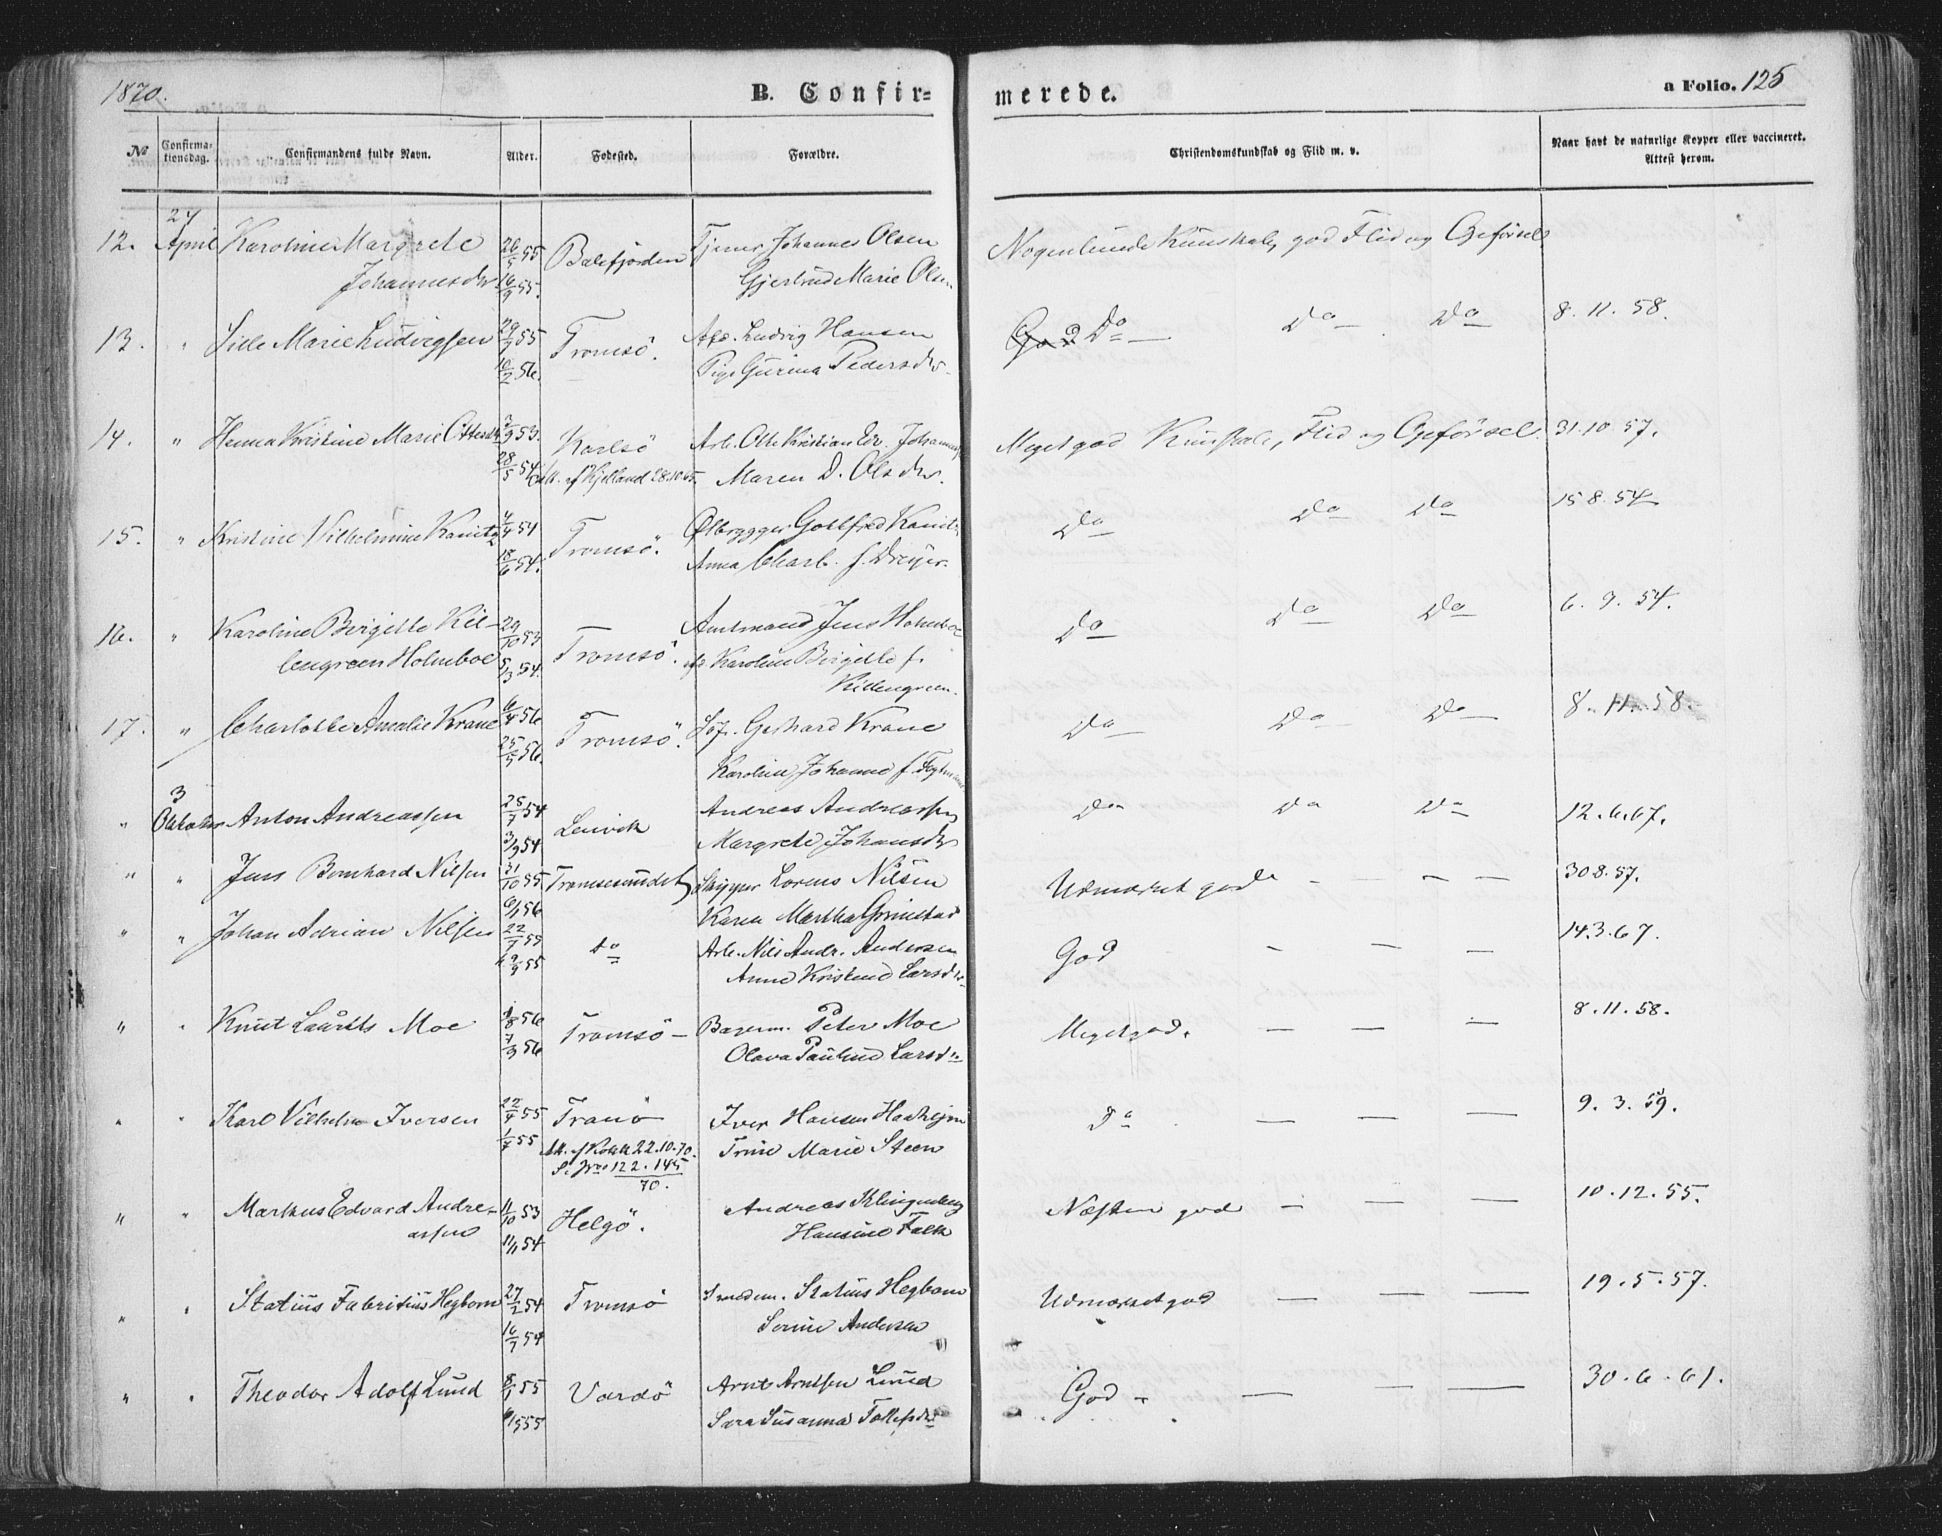 1870.
B. Confir=
merede.
a Folio. 125
No
Confirma-
tionsdag.
Confirmandens fulde Navn.
Alder.
Fødested.
Forældre.
Christendomskundskab og Flid m. v.
Naar havt de naturlige Kopper eller vaccineret.
Attest herom.
24
12. April Karoline Margrete 26/5 55 Balsfjorden Tjener Johannes Olsen Nogenlunde Kundskab, god Flid og Opførsel
Johannesdtr 16/9 55. Gjertrud Marie Olsen
13. " Sille Marie Ludvigsen 29/9 55 Tromsö. Afs. Ludvig Hansen God Do Do Do 8.11.58.
10/2 56. Pige Gurina Pedersdtr
14. " Hanna Kristine Marie Ottesdtr 7/9 53. Karlsö Arb. Otte Kristian Edv. Johannes Meget god Kundskab, Flid og Opførsel. 31.10.57.
28/5 54 Att. af Kjelland 28.10.65. Maren D. Olsdtr.
15. " Kristine Vilhelmine Kanitz 4/4 54 Tromsö. Ølbrygger Gottfred Kanitz Do Do Do 15.8.54
18/6 54. Anna Charl. f. Dreyer.
16. " Karoline Birgitte Kil- 29/10 53 Tromsö. Amtmand Jens Holmboe Do Do Do 6.9.54.
lengreen Holmboe 5/3 54. og Karoline Birgitte f.
Killengreen.
17. " Charlotte Amalie Krane 6/4 56 Tromsö. Gerhard Krane Do Do Do 8.11.58.
25/5 56. Karoline Johanne f.
3
" Oktober Anton Andreassen 25/7 54 Lenvik Andreas Andreassen Do Do Do 12.6.67.
3/9 54 Margrete Johansdtr
" " Jens Bernhard Nilsen 31/10 55. Tromsesundet Skipper Lorens Nilsen Udmærket god - - - - 30 8.57.
6/1 56 Karen Martha Grimstad
" " Johan Adrian Nilsen 22/7 55 do Arb. Nils Andr. Andersen God - - - 14.3.67.
29/9 55 Anne Kristine Larsdtr
" " Knut Laurits Moe 1/8 56 Tromsö - Bagerm. Peter Moe Meget god. - - - 8.11.58.
7/9 56 Olava Pauline Larsdtr
" " Karl Vilhelm Iversen 22/4 55 Tranö Iver Hansen Do - - - 9.3.59.
1/7 55 Att. f Kokk 22.10.70. Trine Marie Steen
S. Nro 122.145
70.
" " Markus Edvard Andre- 11/10 53 Helgö. Andreas Klingenberg Næsten god - - - 10.12.55.
assen 11/1 54 Hansine Falk
" " Statius Fabritius Hegbom 27/2 54 Tromsö Smedm. Statius Hegbom Udmærket god - - - 19.5.57.
16/7 54 Serine Andersen
" " Theodor Adolf Lund 8/1 55 Vardö Arnt Arntsen Lund God - - - - 30.6.61.
Sara Susanna Tollefsdtr